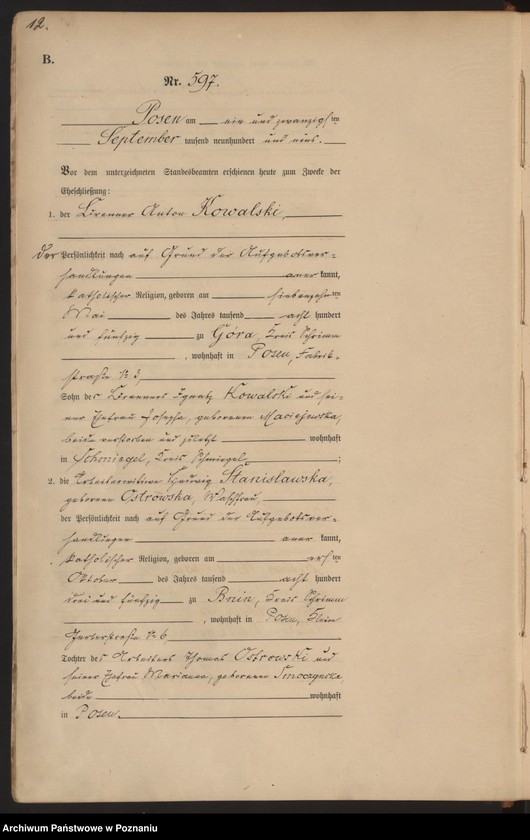 12.
B.
Nr. 597.
Posen am ein und zwanzigsten
September tausend neunhundert und neun.
Vor dem unterzeichneten Standesbeamten erschienen heute zum Zwecke der
Eheschließung:
1. der Brenner Anton Kowalski,
der Persönlichkeit nach auf Grund der Aufgebotsver-
handlungen anerkannt,
katholischer Religion, geboren am siebenzehnten
Mai des Jahres tausend acht hundert
und fünfzig zu Góra, Kreis Schrimm
, wohnhaft in Posen, Fabrik-
straße N.
Sohn des Brenners Ignatz Kowalski und sei-
ner Ehefrau Josepha, geborenen Maciejewska,
beide verstorben und zuletzt wohnhaft
in Schmiegel, Kreis Schmiegel;
2. die Arbeiterwitwe Hedwig Stanisławska,
geborene Ostrowska, Waschfrau,
der Persönlichkeit nach auf Grund der Aufgebotsver-
handlungen anerkannt,
katholischer Religion, geboren am ersten
Oktober des Jahres tausend acht hundert
drei und fünfzig zu Bnin, Kreis Schrimm
, wohnhaft in Posen, Klein
Gerberstraße N. 6
Tochter des Arbeiters Thomas Ostrowski und
seiner Ehefrau Marianna, geborenen Smoczynska
beide wohnhaft
in Posen.
Archiwum Państwowe w Poznaniu